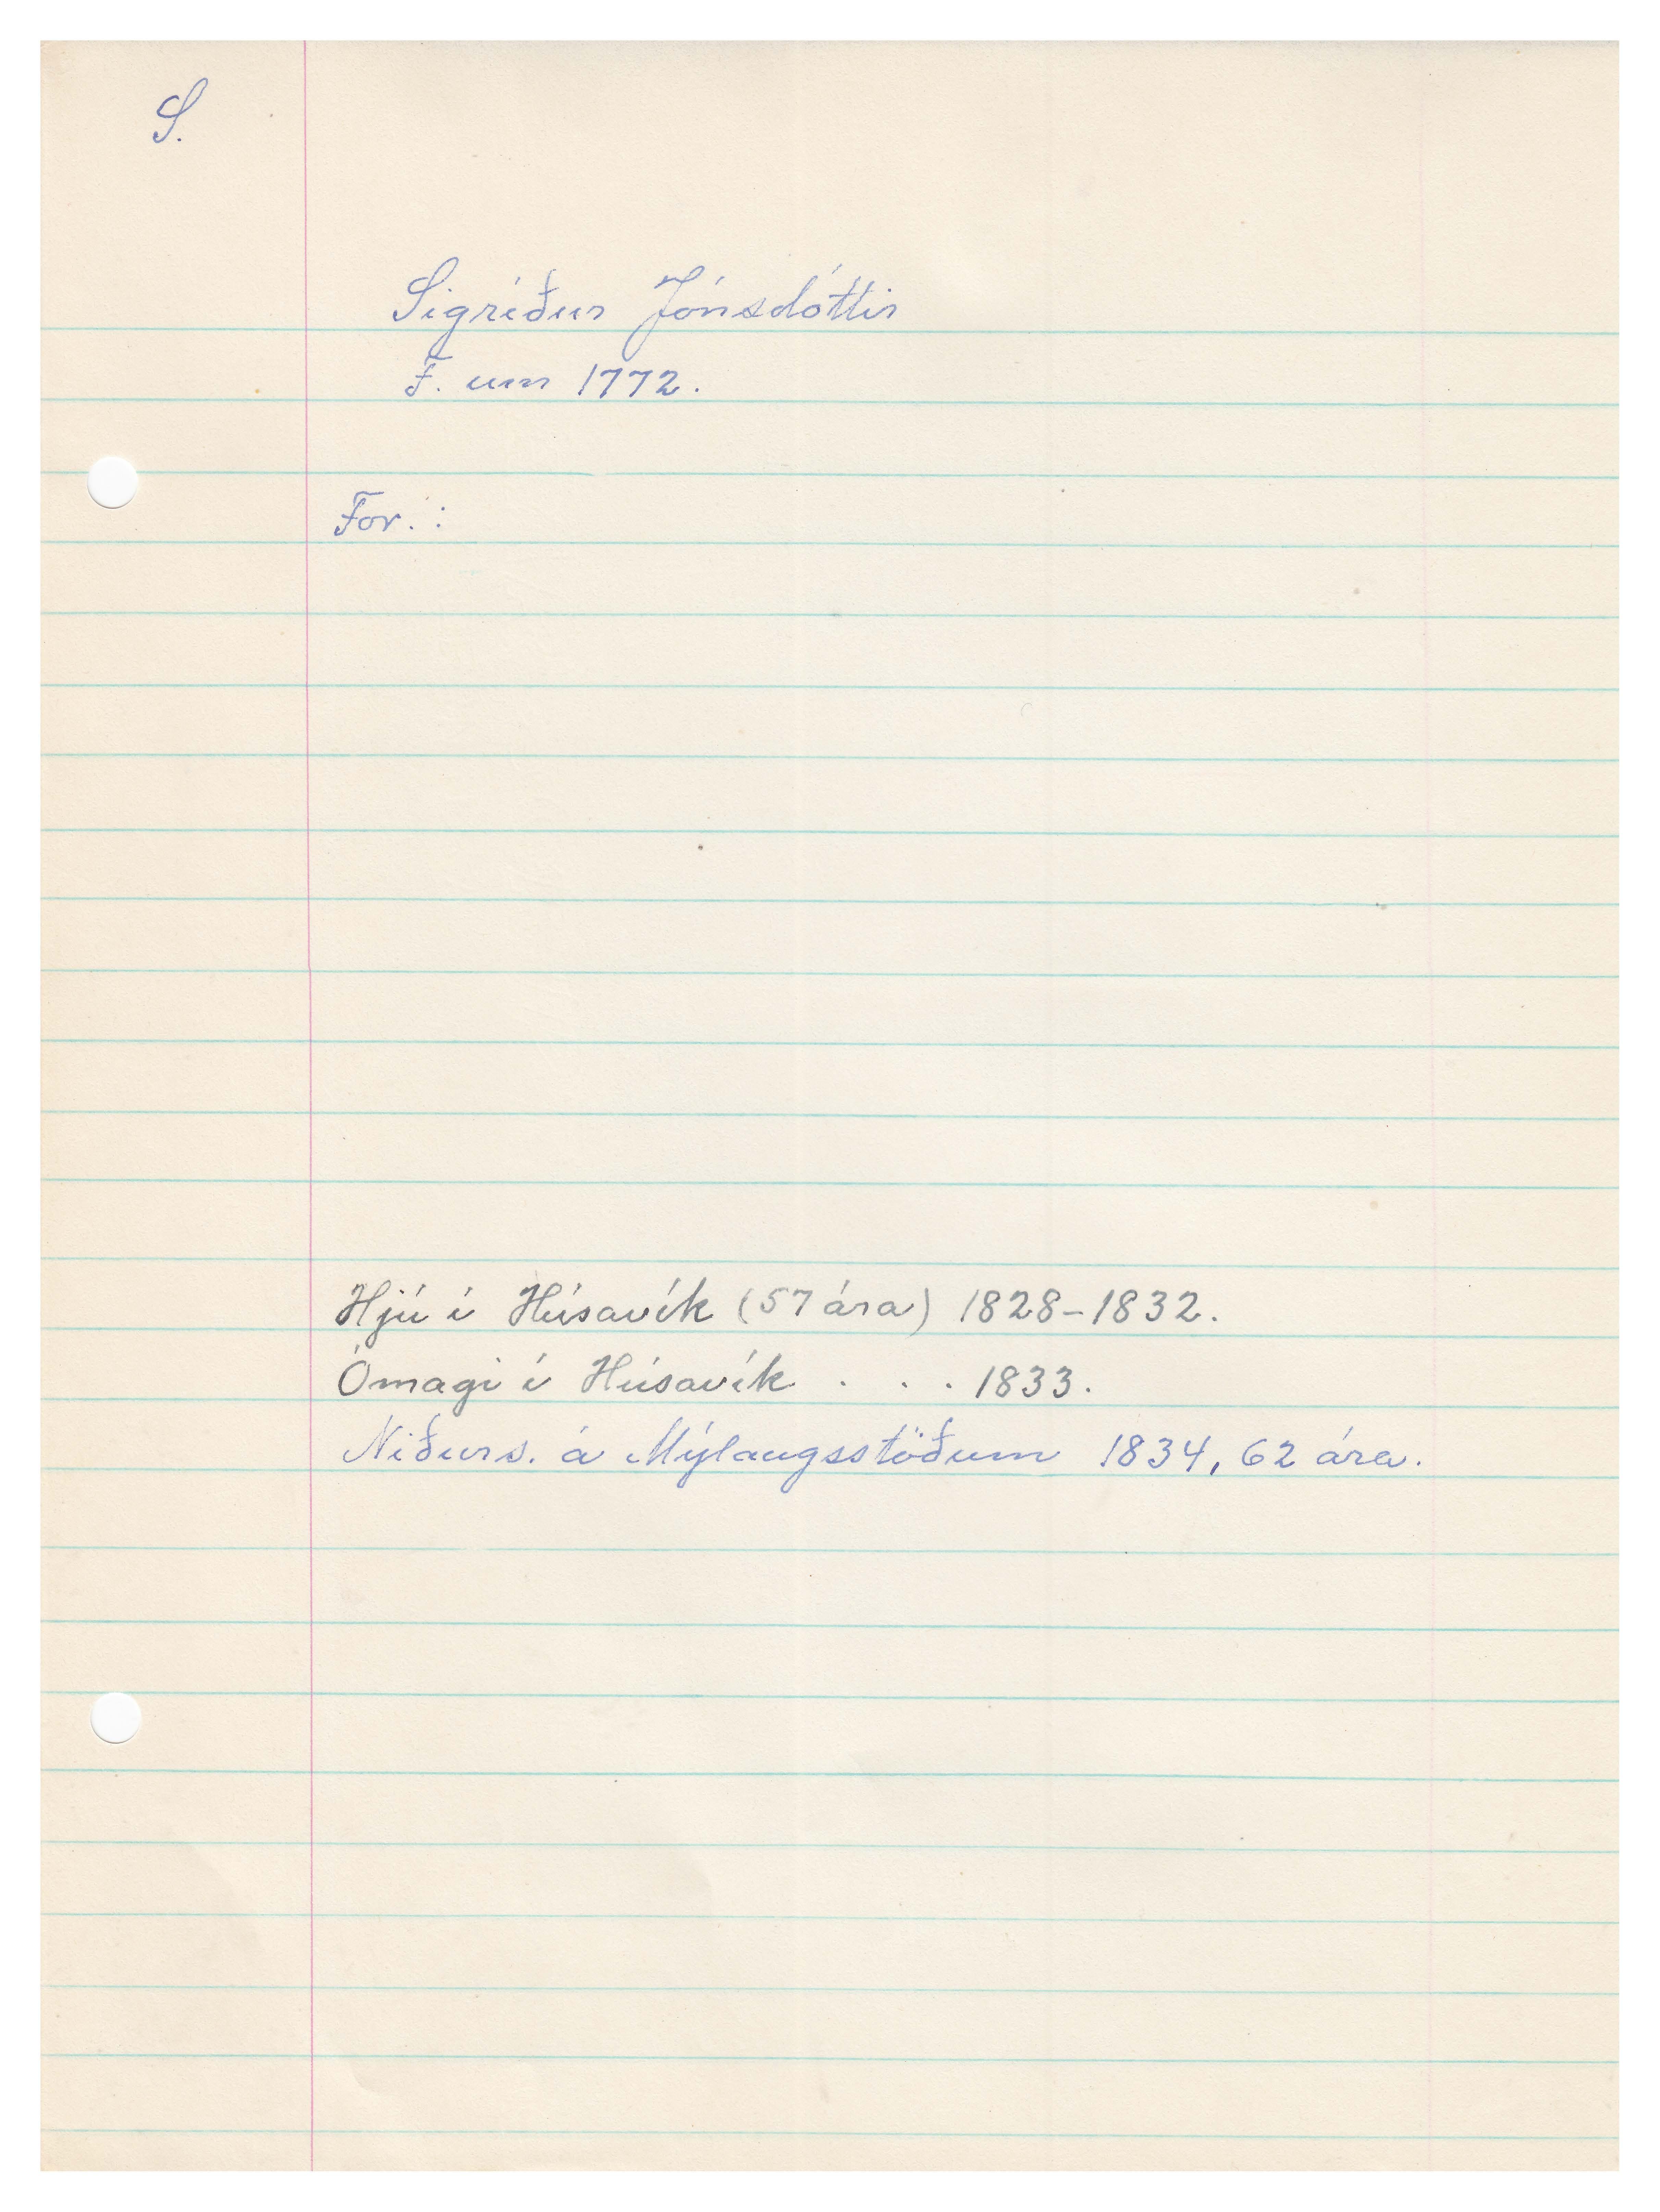 S.
Sigríður Jónsdóttir
F. um 1772.
For. :
Hjú í Húsavík (57 ára) 1828-1832.
Ómagi í Húsavík . . . 1833.
Niðurs. á Mýlaugsstöðum 1834, 62 ára.